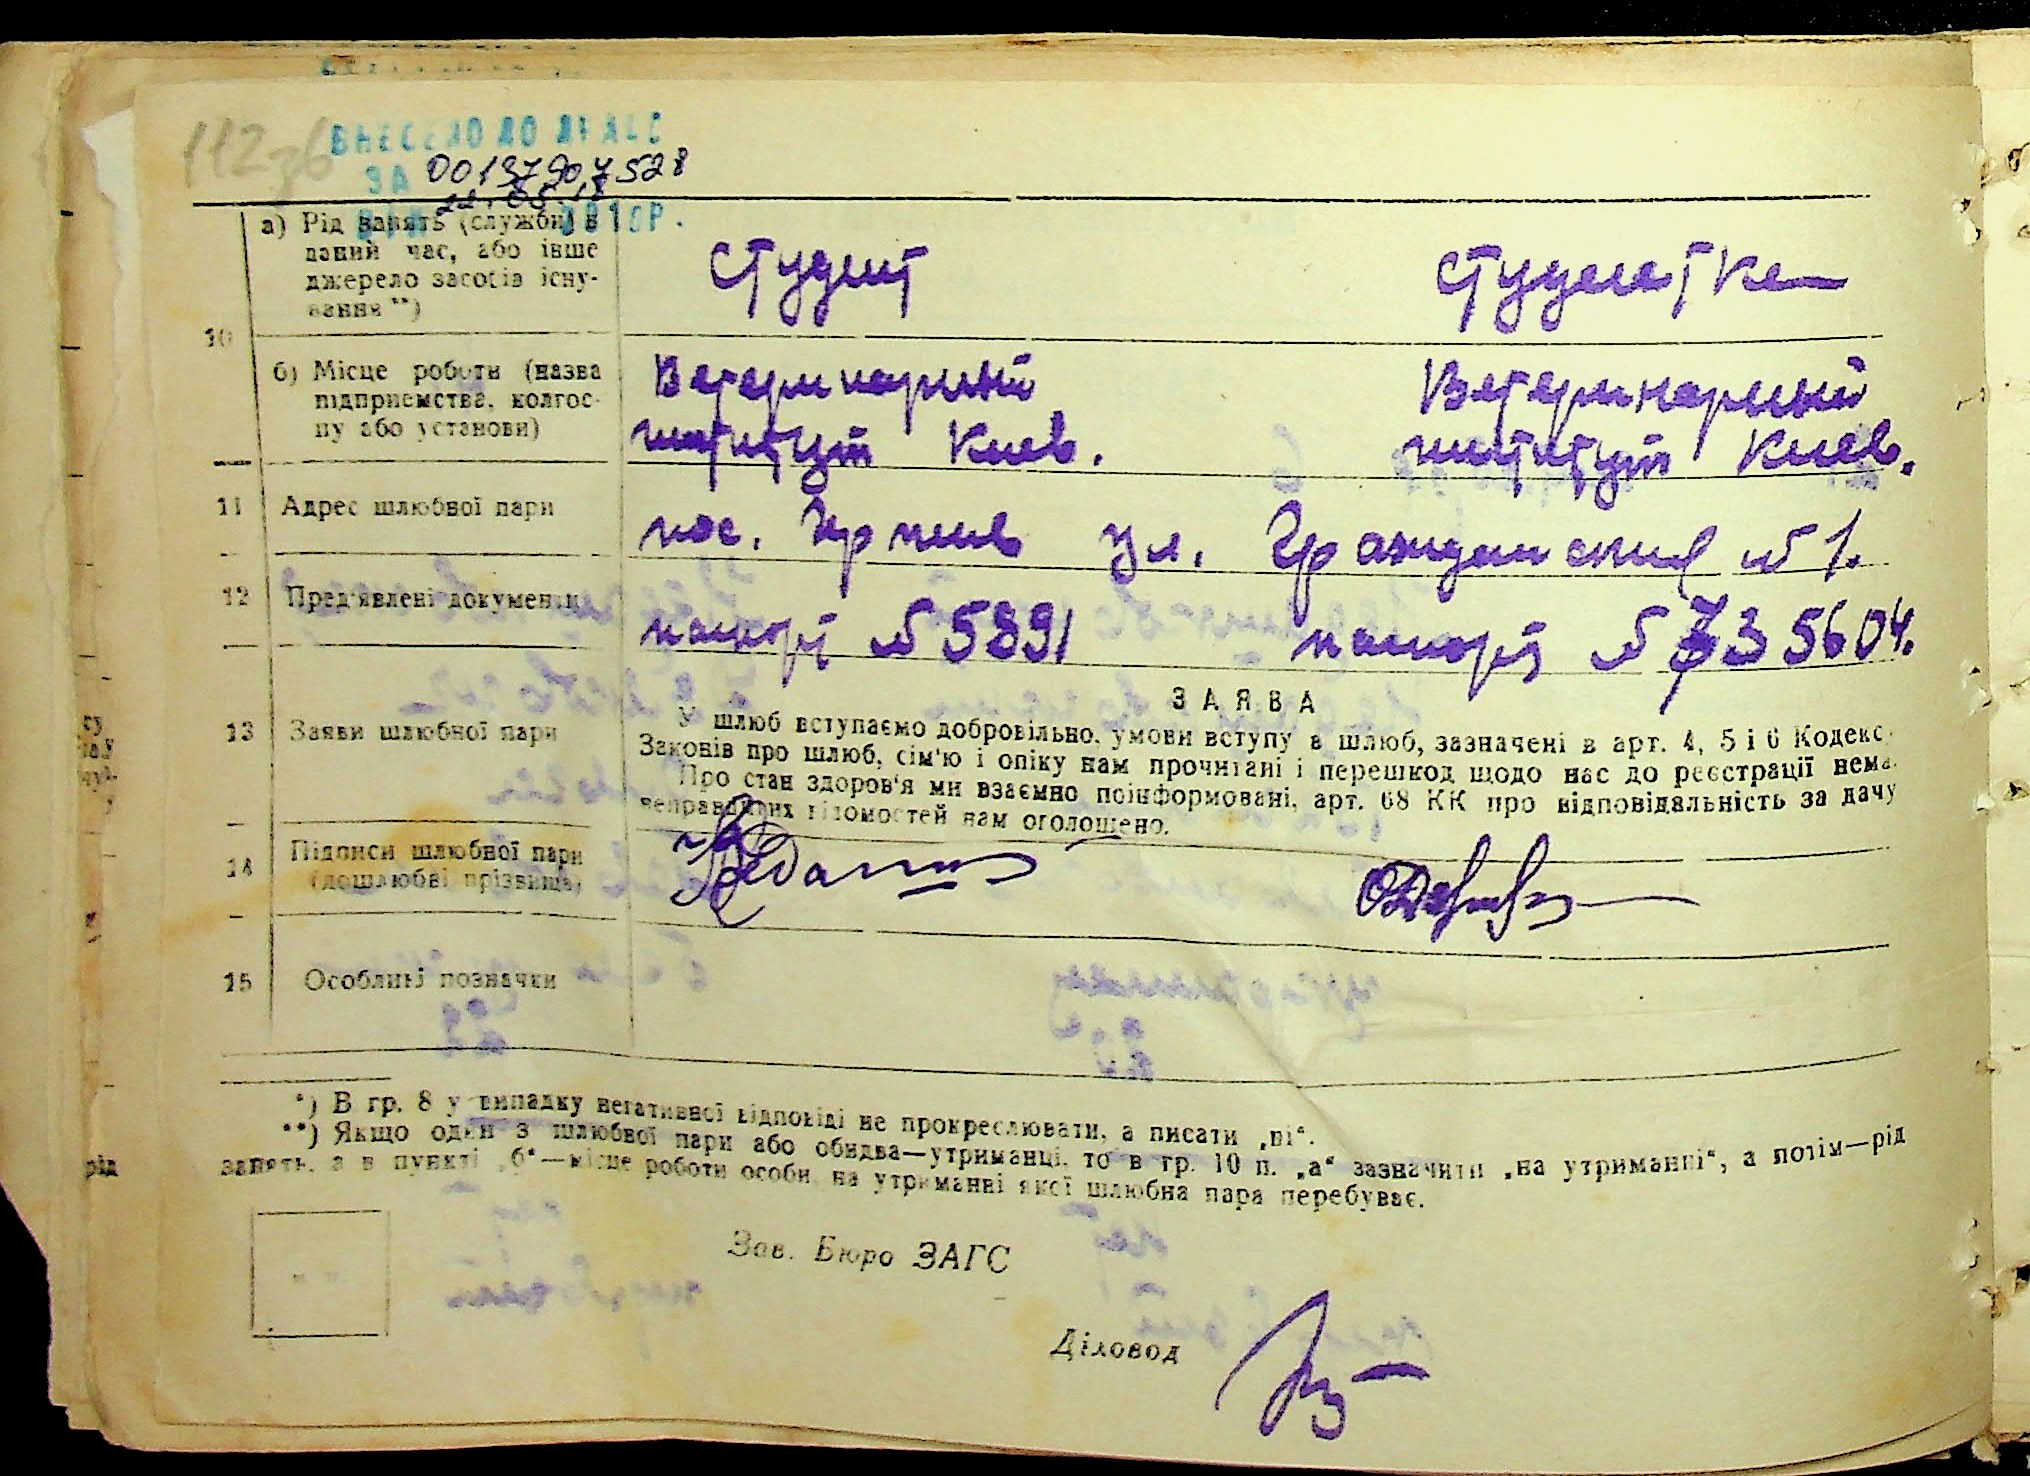 112зб
ВНЕСЕНО ДО ДРАЦС
ЗА 00137907528
10
а) Рід занять (служби) в
даний час, або інше
джерело засобів існу-
вання **)
студент
студентка
б) Місце роботи (назва
підприємства, колгос-
пу або установи)
Ветеринарный
институт Киев.
Ветеринарный
институт Киев.
11
Адрес шлюбної пари
пос. Ирпень ул. Гражданская № 1.
12
Пред'явлені документи
паспорт № 5891
паспорт № 735604.
13
Заяви шлюбної пари
ЗАЯВА
У шлюб вступаємо добровільно, умови вступу в шлюб, зазначені в арт. 4, 5 і 6 Кодексу
Законів про шлюб, сім'ю і опіку нам прочитані і перешкод щодо нас до реєстрації нема.
Про стан здоров'я ми взаємно поінформовані, арт. 68 КК про відповідальність за дачу
неправдивих відомостей нам оголошено.
14
Підписи шлюбної пари
(дошлюбні прізвища)
15
Особливі позначки
*) В гр. 8 у випадку негативної відповіді не прокреслювати, а писати „ні“.
**) Якщо один з шлюбної пари або обидва—утриманці, то в гр. 10 п. „а“ зазначити „на утриманні“, а потім—рід
занять, а в пункті „б“—місце роботи особи, на утриманні якої шлюбна пара перебуває.
Зав. Бюро ЗАГС
Діловод
рід